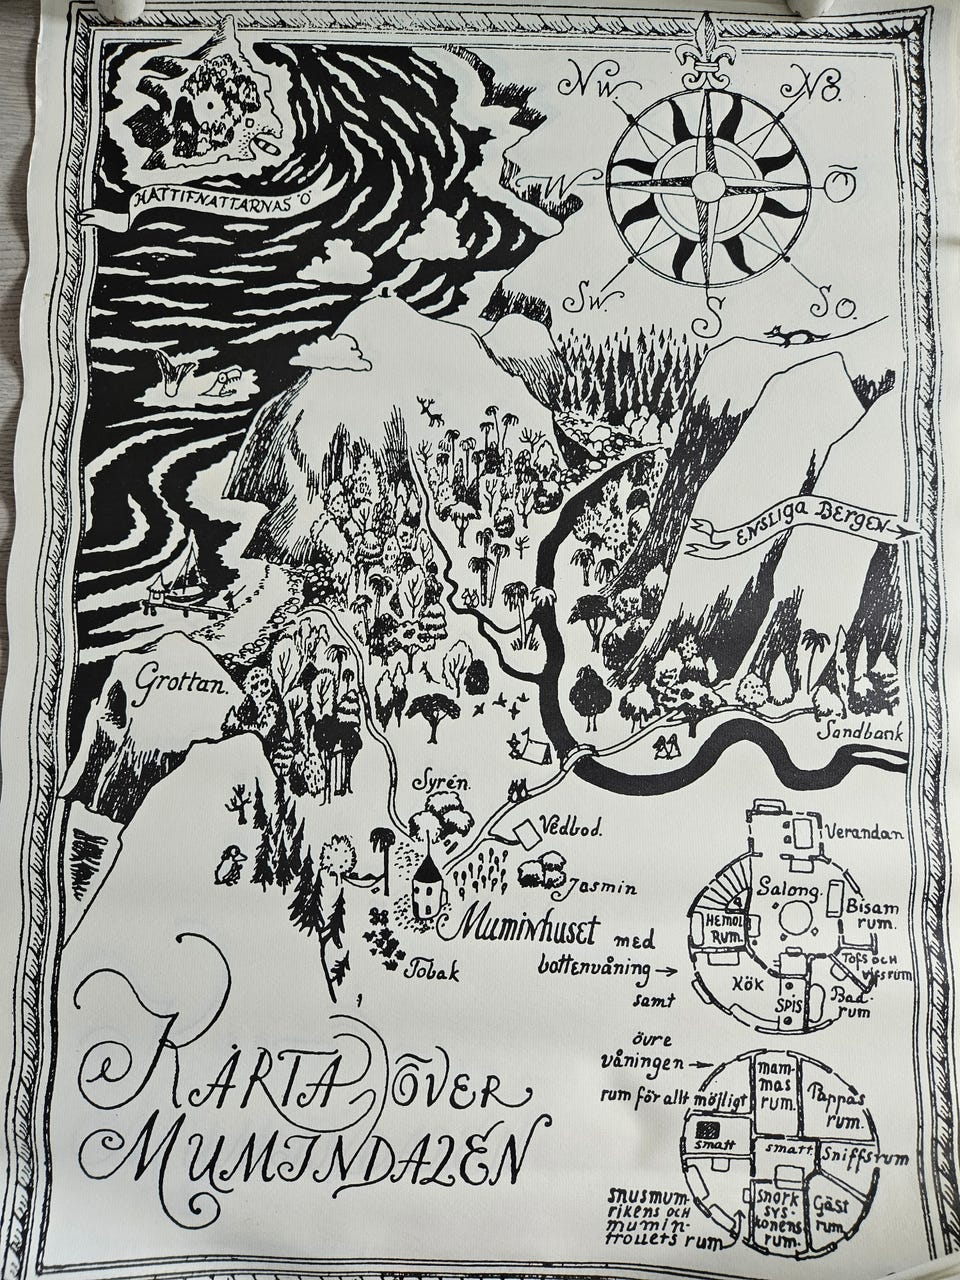 NW
NÖ.
W
Ö
SW.
S
SO.
HATTIFNATTARNAS Ö
ENSLIGA BERGEN
Grottan.
Sandbank
Syrén.
Vedbod.
Jasmin
Muminhuset med
bottenvåning →
samt
Tobak
Verandan
Salong.
Bisam
rum.
HEMUL
RUM.
TOFS OCH
VIFSRUM
Kök
SPIS
Bad-
rum
övre
våningen →
rum för allt möjligt
mam-
mas
rum.
Pappas
rum.
smatt
smatt.
Sniffsrum
SNUSMUM-
RIKENS OCH
MUMIN-
TROLLETS RUM
Snork
sys-
konens
rum.
Gäst
rum
KARTA ÖVER
MUMINDALEN